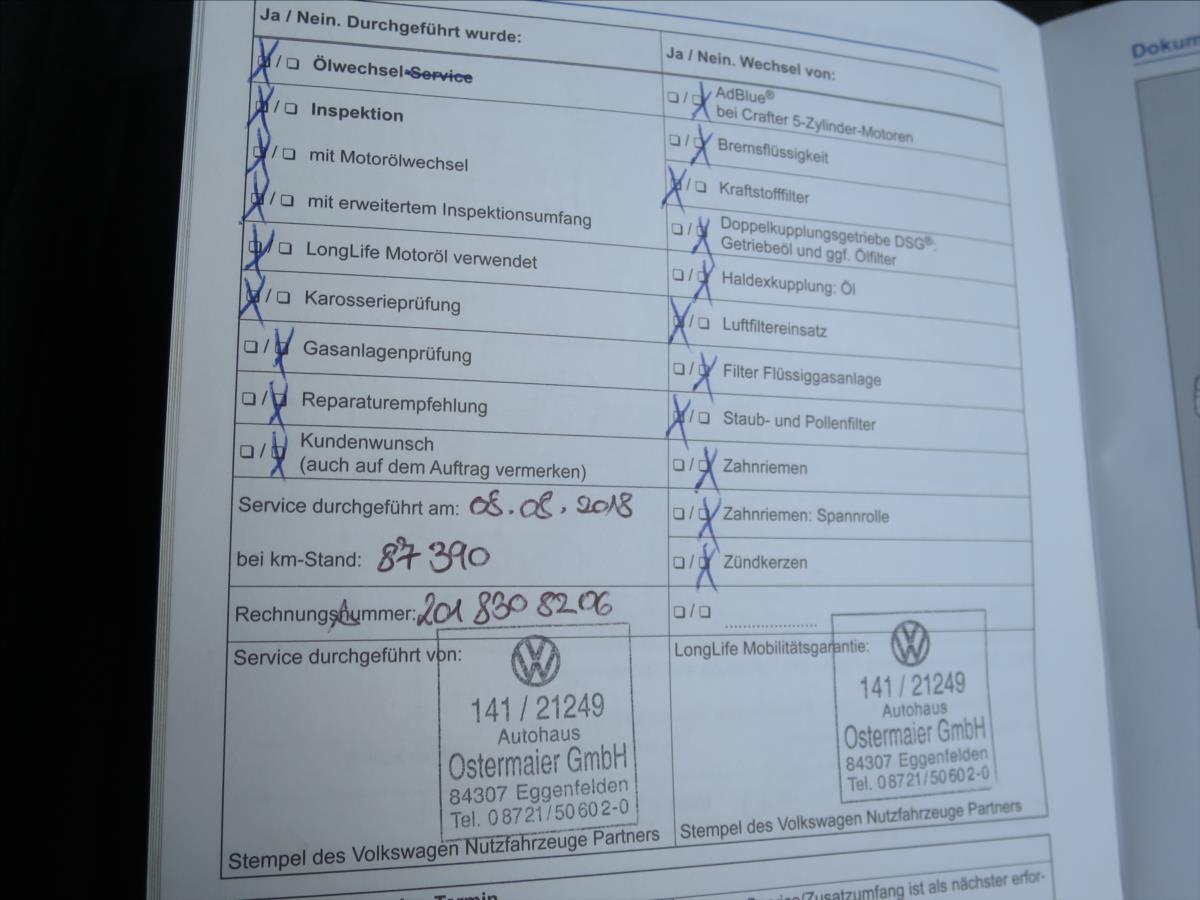 Ja / Nein. Durchgeführt wurde:
☒ / ☐ Ölwechsel-Service
☒ / ☐ Inspektion
☒ / ☐ mit Motorölwechsel
☒ / ☐ mit erweitertem Inspektionsumfang
☒ / ☐ LongLife Motoröl verwendet
☒ / ☐ Karosserieprüfung
☐ / ☒ Gasanlagenprüfung
☐ / ☒ Reparaturempfehlung
☐ / ☒ Kundenwunsch
(auch auf dem Auftrag vermerken)
Service durchgeführt am: 08.08.2018
bei km-Stand: 87 390
Rechnungsnummer: 201 830 8206
Service durchgeführt von:
141 / 21249
Autohaus
Ostermaier GmbH
84307 Eggenfelden
Tel. 08721/50602-0
Stempel des Volkswagen Nutzfahrzeuge Partners
Ja / Nein. Wechsel von:
☐ / ☒ AdBlue®
bei Crafter 5-Zylinder-Motoren
☐ / ☒ Bremsflüssigkeit
☒ / ☐ Kraftstofffilter
☐ / ☒ Doppelkupplungsgetriebe DSG®:
Getriebeöl und ggf. Ölfilter
☐ / ☒ Haldexkupplung: Öl
☒ / ☐ Luftfiltereinsatz
☐ / ☒ Filter Flüssiggasanlage
☒ / ☐ Staub- und Pollenfilter
☐ / ☒ Zahnriemen
☐ / ☒ Zahnriemen: Spannrolle
☐ / ☒ Zündkerzen
☐ / ☐ ....................
LongLife Mobilitätsgarantie:
141 / 21249
Autohaus
Ostermaier GmbH
84307 Eggenfelden
Tel. 08721/50602-0
Stempel des Volkswagen Nutzfahrzeuge Partners
Termin
/Zusatzumfang ist als nächster erfor-
Dokum